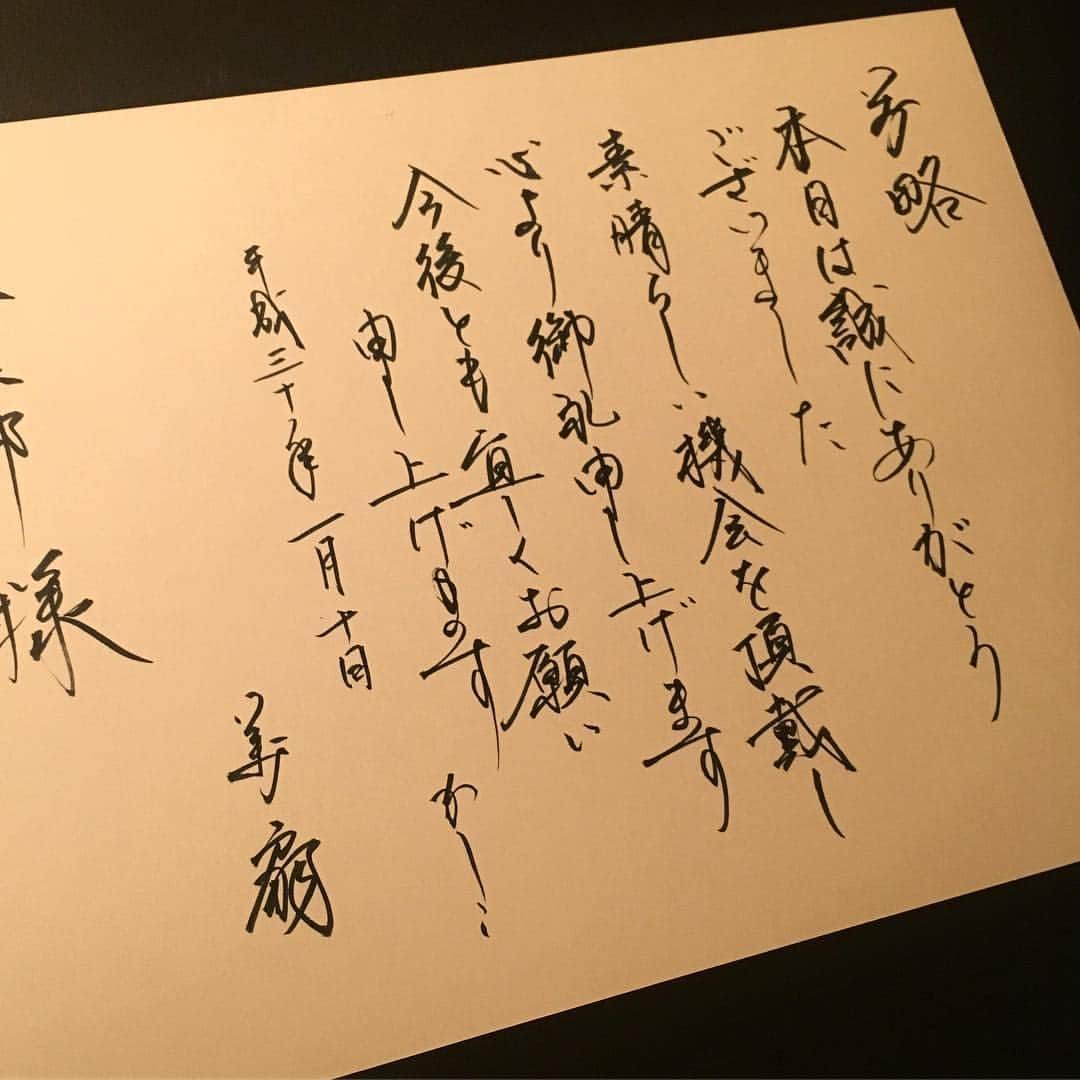 前略
本日は誠にありがとう
ございました
素晴らしい機会を頂戴し
心より御礼申し上げます
今後とも宜しくお願い
申し上げます
かしこ
平成三十年一月十日
郎様